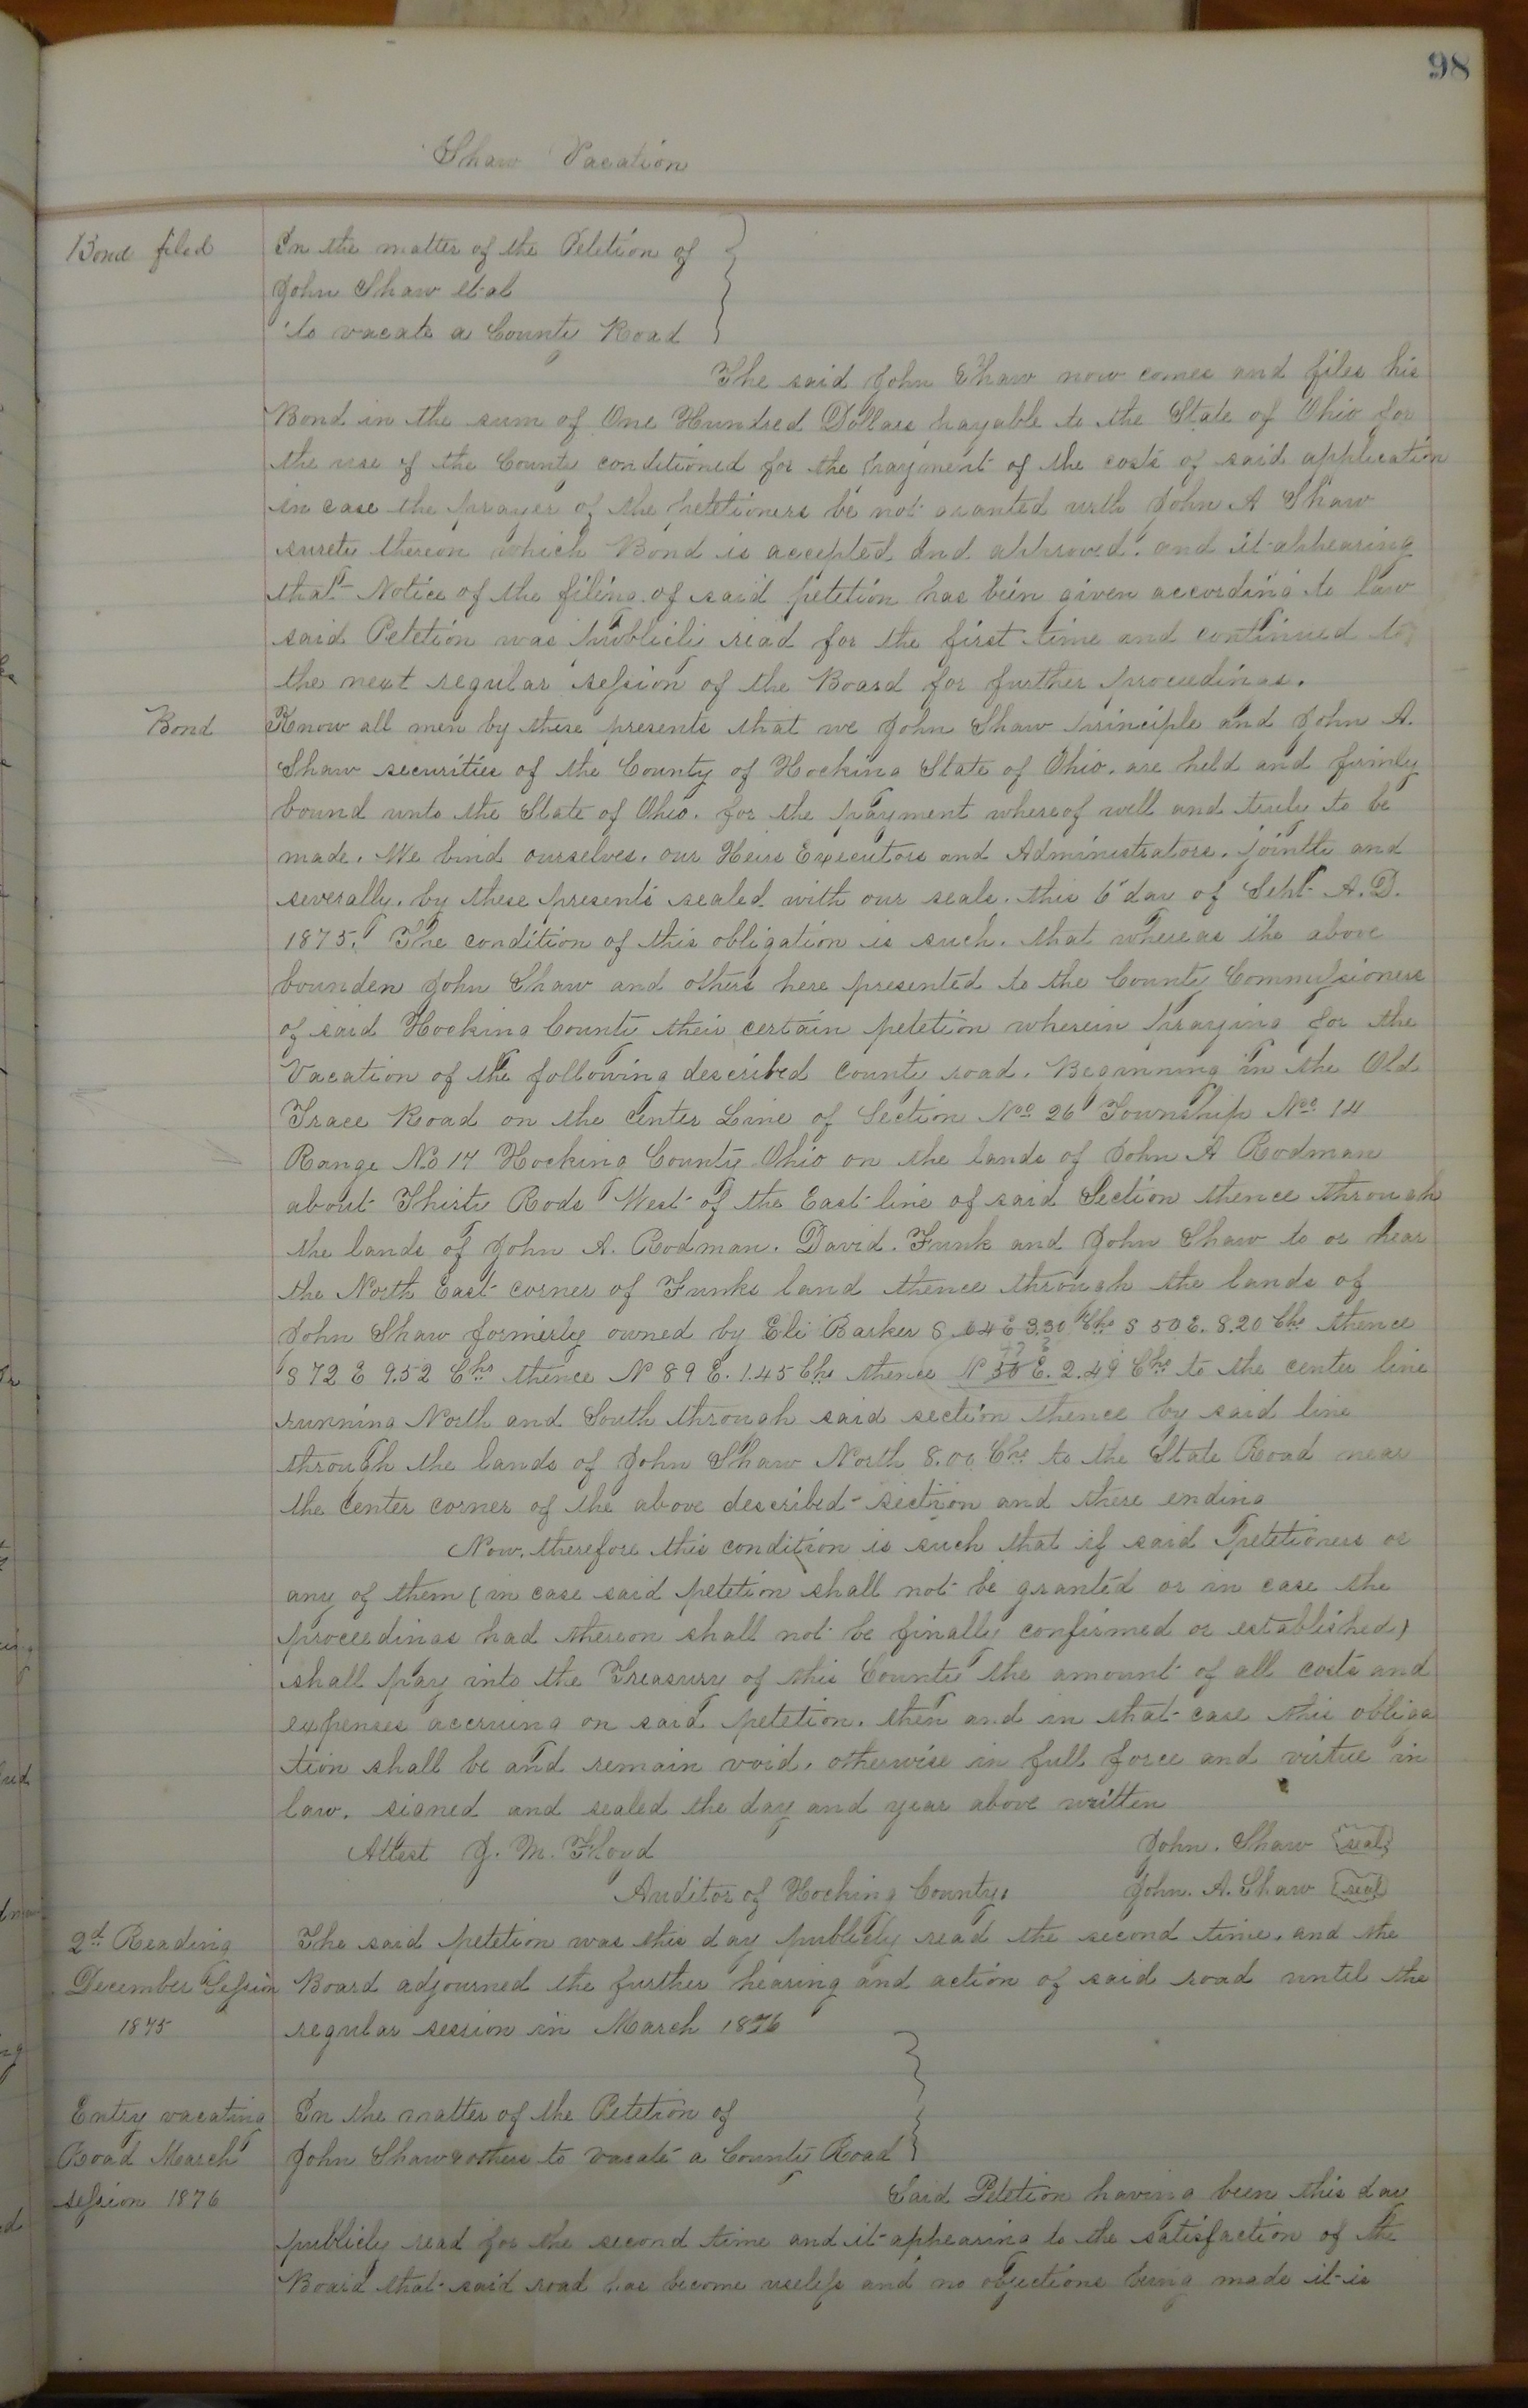 98
Shaw Vacation
Bond filed
In the matter of the Petetion of
John Shaw et al
to vacate a County Road
The said John Shaw now comes and files his
Bond in the sum of One Hundred Dollars payable to the State of Ohio for
the use of the County conditioned for the payment of the costs of said application
in case the prayer of the petetioners be not granted with John A Shaw
surety thereon which Bond is accepted and approved. and it appearing
that Notice of the filing of said petetion has been given according to law
said Petetion was publicly read for the first time and continued to
the next regular session of the Board for further proceedings.
Bond
Know all men by these presents that we John Shaw principle and John A.
Shaw securities of the County of Hocking State of Ohio. are held and firmly
bound unto the State of Ohio. for the payment whereof well and truly to be
made. We bind ourselves. our Heirs Executors and Administrators. jointly and
severally. by these presents sealed with our seals. this 6 day of Sept A.D.
1875. The condition of this obligation is such. that whereas the above
bounden John Shaw and others here presented to the County Commissioners
of said Hocking County their certain petetion wherein praying for the
Vacation of the following described County road. Beginning in the Old
Trace Road on the Center Line of Section No 26 Township No 14
Range No 17 Hocking County Ohio on the lands of John A Rodman
about Thirty Rods West of the East line of said Section thence through
the lands of John A. Rodman. David. Funk and John Shaw to or near
the North East corner of Funks land thence through the lands of
John Shaw formerly owned by Eli Barker S 64 E 3.30 Chs S 50 E. 8.20 Chs thence
S 72 E 9.52 Chs thence N 89 E. 1.45 Chs thence N E. 2.49 Chs to the center line
running North and South through said section thence by said line
through the lands of John Shaw North 8.00 Chs to the State Road near
the Center corner of the above described section and there ending
Now. therefore this condition is such that if said petetioners or
any of them (in case said petetion shall not be granted or in case the
proceedings had thereon shall not be finally confirmed or established)
shall pay into the Treasury of this County the amount of all costs and
expenses accruing on said petetion. then and in that case this obliga
tion shall be and remain void. otherwise in full force and virtue in
law. signed and sealed the day and year above written
Attest J. M. Floyd
John. Shaw seal
Auditor of Hocking County.
John. A. Shaw seal
2d Reading
December Session
1875
The said petetion was this day publicly read the second time. and the
Board adjourned the further hearing and action of said road until the
regular session in March 1876
Entry vacating
Road March
session 1876
In the matter of the Petetion of
John Shaw & others to vacate a County Road
Said Petetion having been this day
publicly read for the second time and it appearing to the satisfaction of the
Board that said road has become useless and no objections being made it is